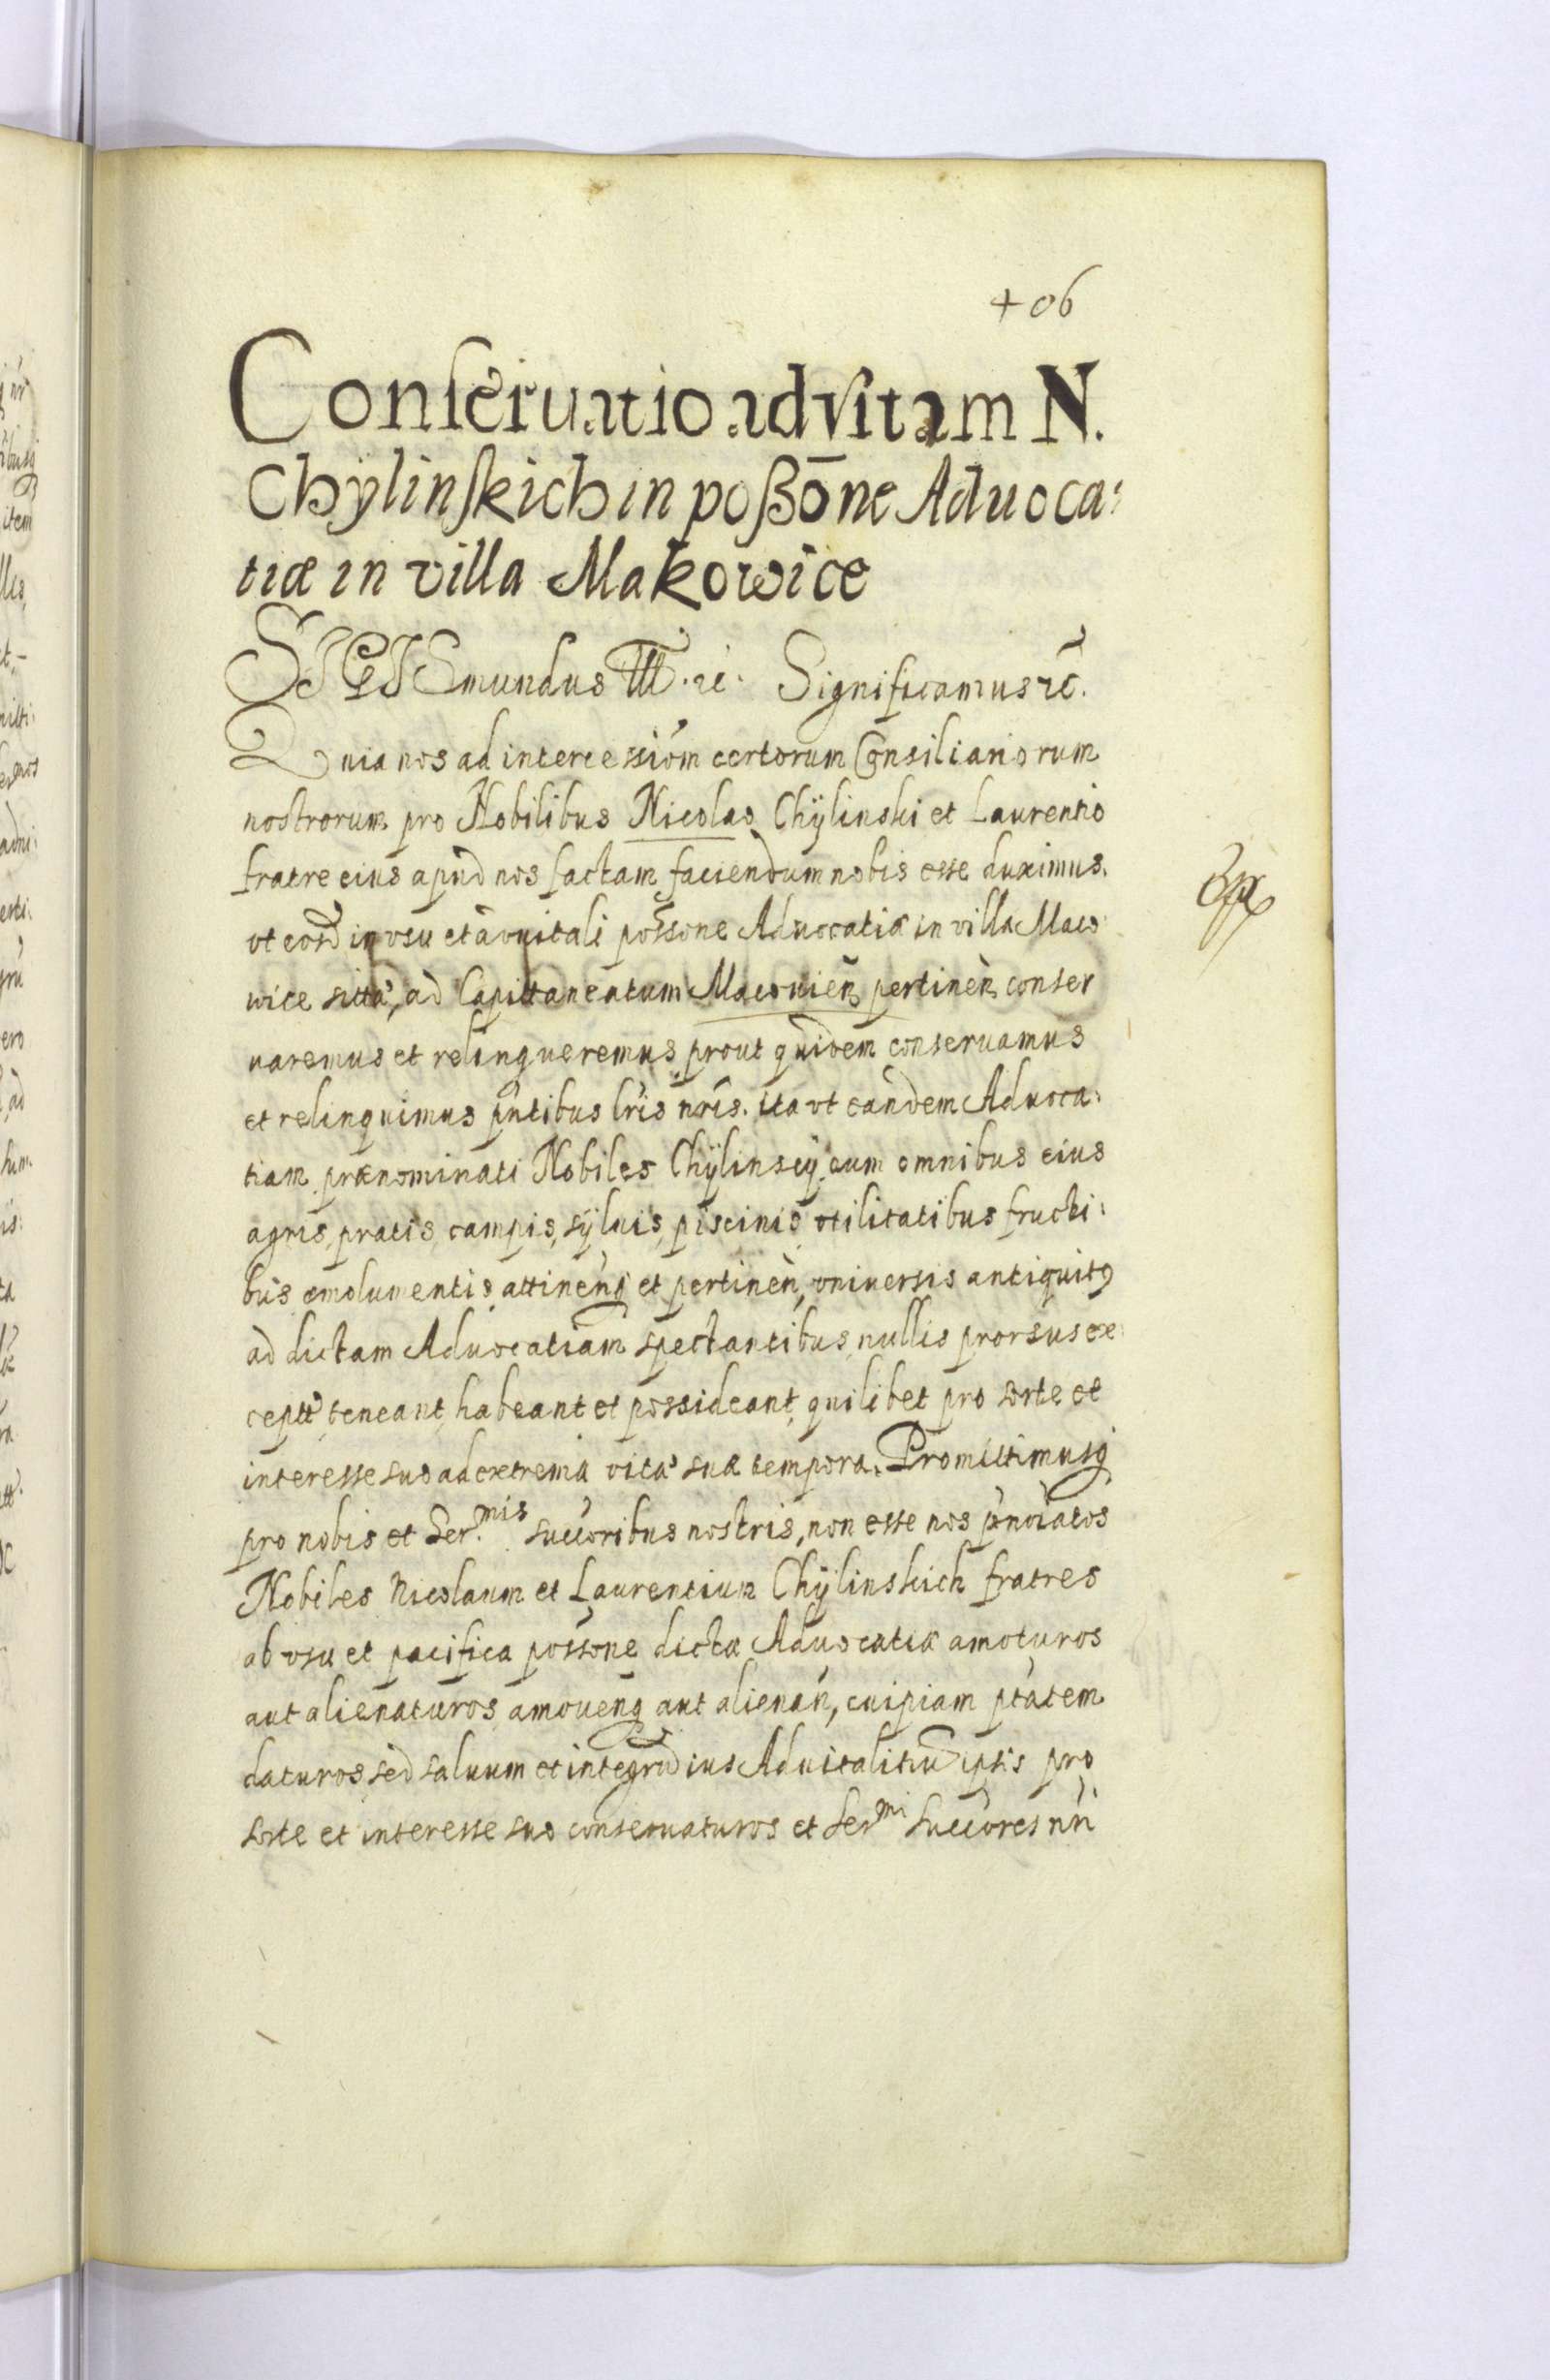 406
Conseruatio ad vitam N.
Chÿlinskich in poßōne Aduoca:
tiæ in villa Makowice
SIGISmundus III. etc. Significamus etc.
Quia nos ad intercessiōm certorum Consiliariorum
nostrorum pro Nobilibus Nicolao Chÿlinski et Laurentio
fratre eius apud nos factam faciendum nobis esse duximus.
vt eosd in vsu et aduitali possone Aduocatiæ in villa Maco
wice sittæ, ad Capittaneatum Macouien̄ pertinen̄ conser
uaremus et relinqueremus, prout quidem conseruamus
et relinquimus pn̄tibus lr̄is nr̄is. ita vt eandem Aduoca:
tiam prænominati Nobiles Chÿlinscÿ cum omnibus eius
agris, pratis, campis, sÿluis, piscinis vtilitatibus fructi:
bus emolumentis attinen̄q et pertinen̄, vniuersis antiquitꝰ
ad dictam Aduocatiam spectantibus, nullis prorsus ex:
ceptt, teneant, habeant et possideant, quilibet pro sorte et
interesse suo ad extrema vitæ suæ tempora. Promittimusq
pro nobis et Ser.mis succoribus nostris, non esse nos prænoīatos
Nobiles Nicolaum et Laurentium Chÿlinskich fratres
ab vsu et pacifica possone dictæ Aduocatiæ amoturos
aut alienaturos, amouen̄q aut alienan̄, cuipiam ptātem
daturos, sed saluum et integrū ius Aduitalitiū ipsis pro
sorte et interesse suo conseruaturos et Sermi Succores nr̄i